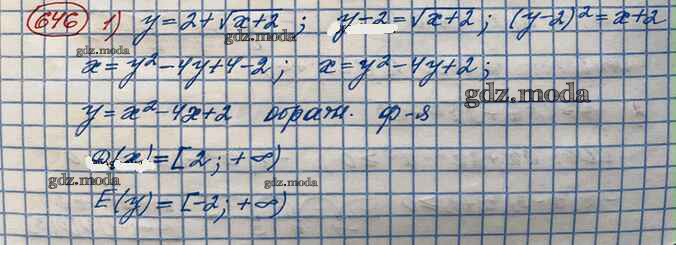 646 1) y = 2 + √x+2 ; y - 2 = √x+2 ; (y-2)² = x+2
x = y² - 4y + 4 - 2 ; x = y² - 4y + 2 ;
gdz.moda
y = x² - 4x + 2 обратн. ф-я
D(x) = [2; +∞)
gdz.moda
gdz.moda
E(y) = [-2; +∞)
gdz.moda